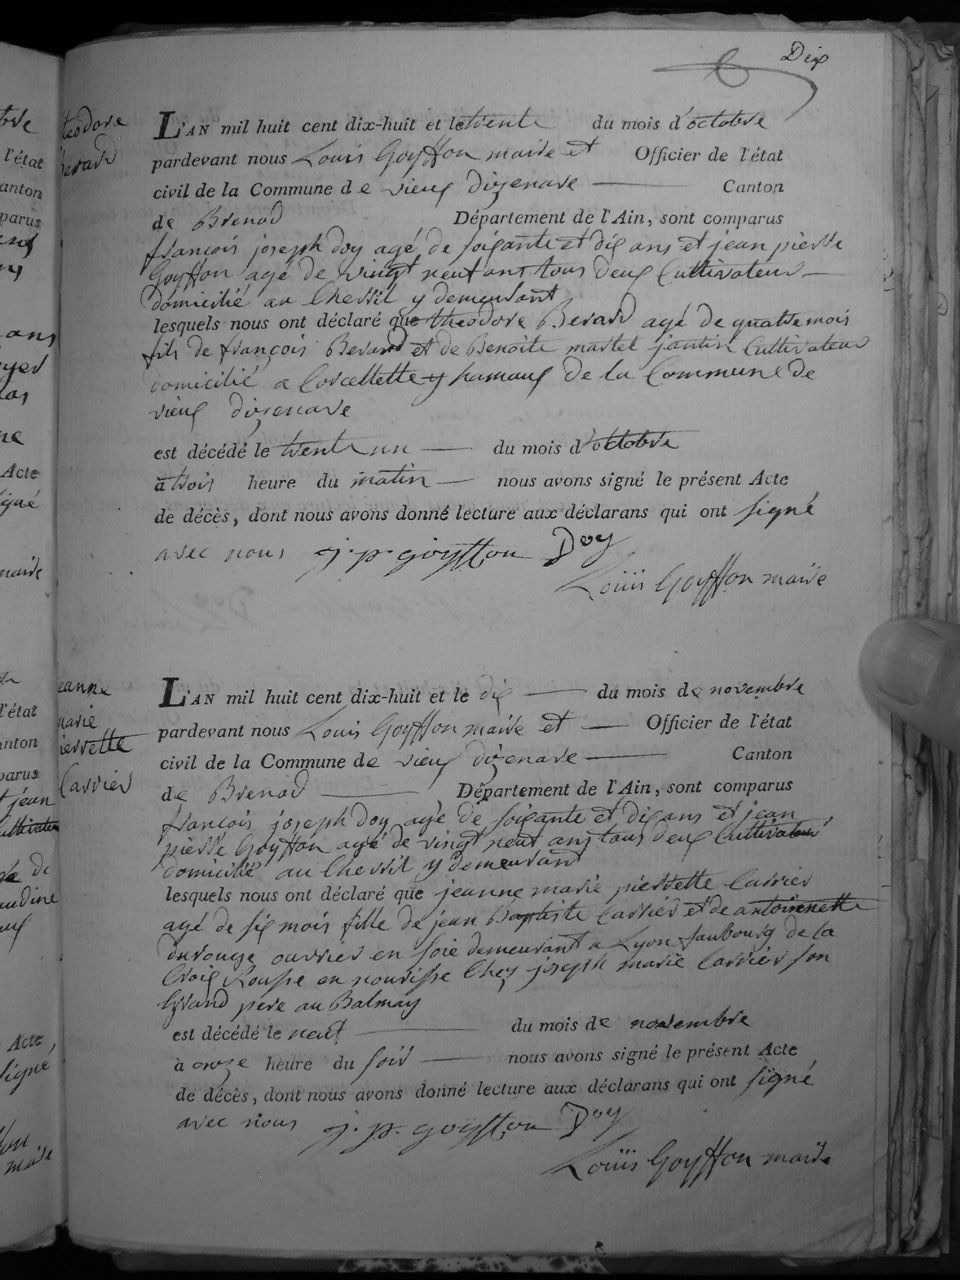 Dix
theodore
berard
L'AN mil huit cent dix-huit et le trente du mois d'octobre
pardevant nous Louis Goyffon maire et Officier de l'état
civil de la Commune de vieux dizenave Canton
de Brenod Département de l'Ain, sont comparus
françois joseph doy agé de soixante et dix ans et jean pierre
Goyffon agé de vingt neuf ans tous deux Cultivateur
domicilié au Chevril y demeurant
lesquels nous ont déclaré que theodore Berard agé de quatre mois
fils de françois Berard et de Benoite martel jantin Cultivateur
domicilié a Corcellette y hamaux de la Commune de
vieux dizenave
est décédé le trente un du mois d'octobre
à trois heure du matin nous avons signé le présent Acte
de décès, dont nous avons donné lecture aux déclarans qui ont signé
avec nous j. p. goyffon Doy
Louis Goyffon maire
jeanne
marie
pierrette
Carrier
L'AN mil huit cent dix-huit et le dix du mois de novembre
pardevant nous Louis Goyffon maire et Officier de l'état
civil de la Commune de vieux dizenave Canton
de Brenod Département de l'Ain, sont comparus
francois joseph doy agé de soixante et dix ans et jean
pierre Goyffon agé de vingt neuf ans tous deux Cultivateur
domicilié au Chevril y demeurant
lesquels nous ont déclaré que jeanne marie pierrette Carrier
agé de six mois fille de jean Baptiste Carrier et de antoinnette
Durouge ouvrier en soie demeurant a Lyon faubourg de la
Croix Rousse en nourisse Chez joseph marie Carrier son
Grand pere au Balmay
est décédé le neuf du mois de novembre
à onze heure du soir nous avons signé le présent Acte
de décès, dont nous avons donné lecture aux déclarans qui ont signé
avec nous j. p. goyffon Doy
Louis Goyffon maire